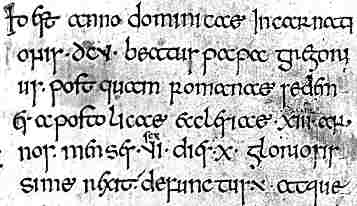 Id est anno dominicae Incarnati
onis · dcv · beatus papa gregori
us · post quam romanae sedem
& apostolicae ecclesiae · xiii · an
nos · menses · vi · dies · x · gloriosis
sime rexit · defunctus atque